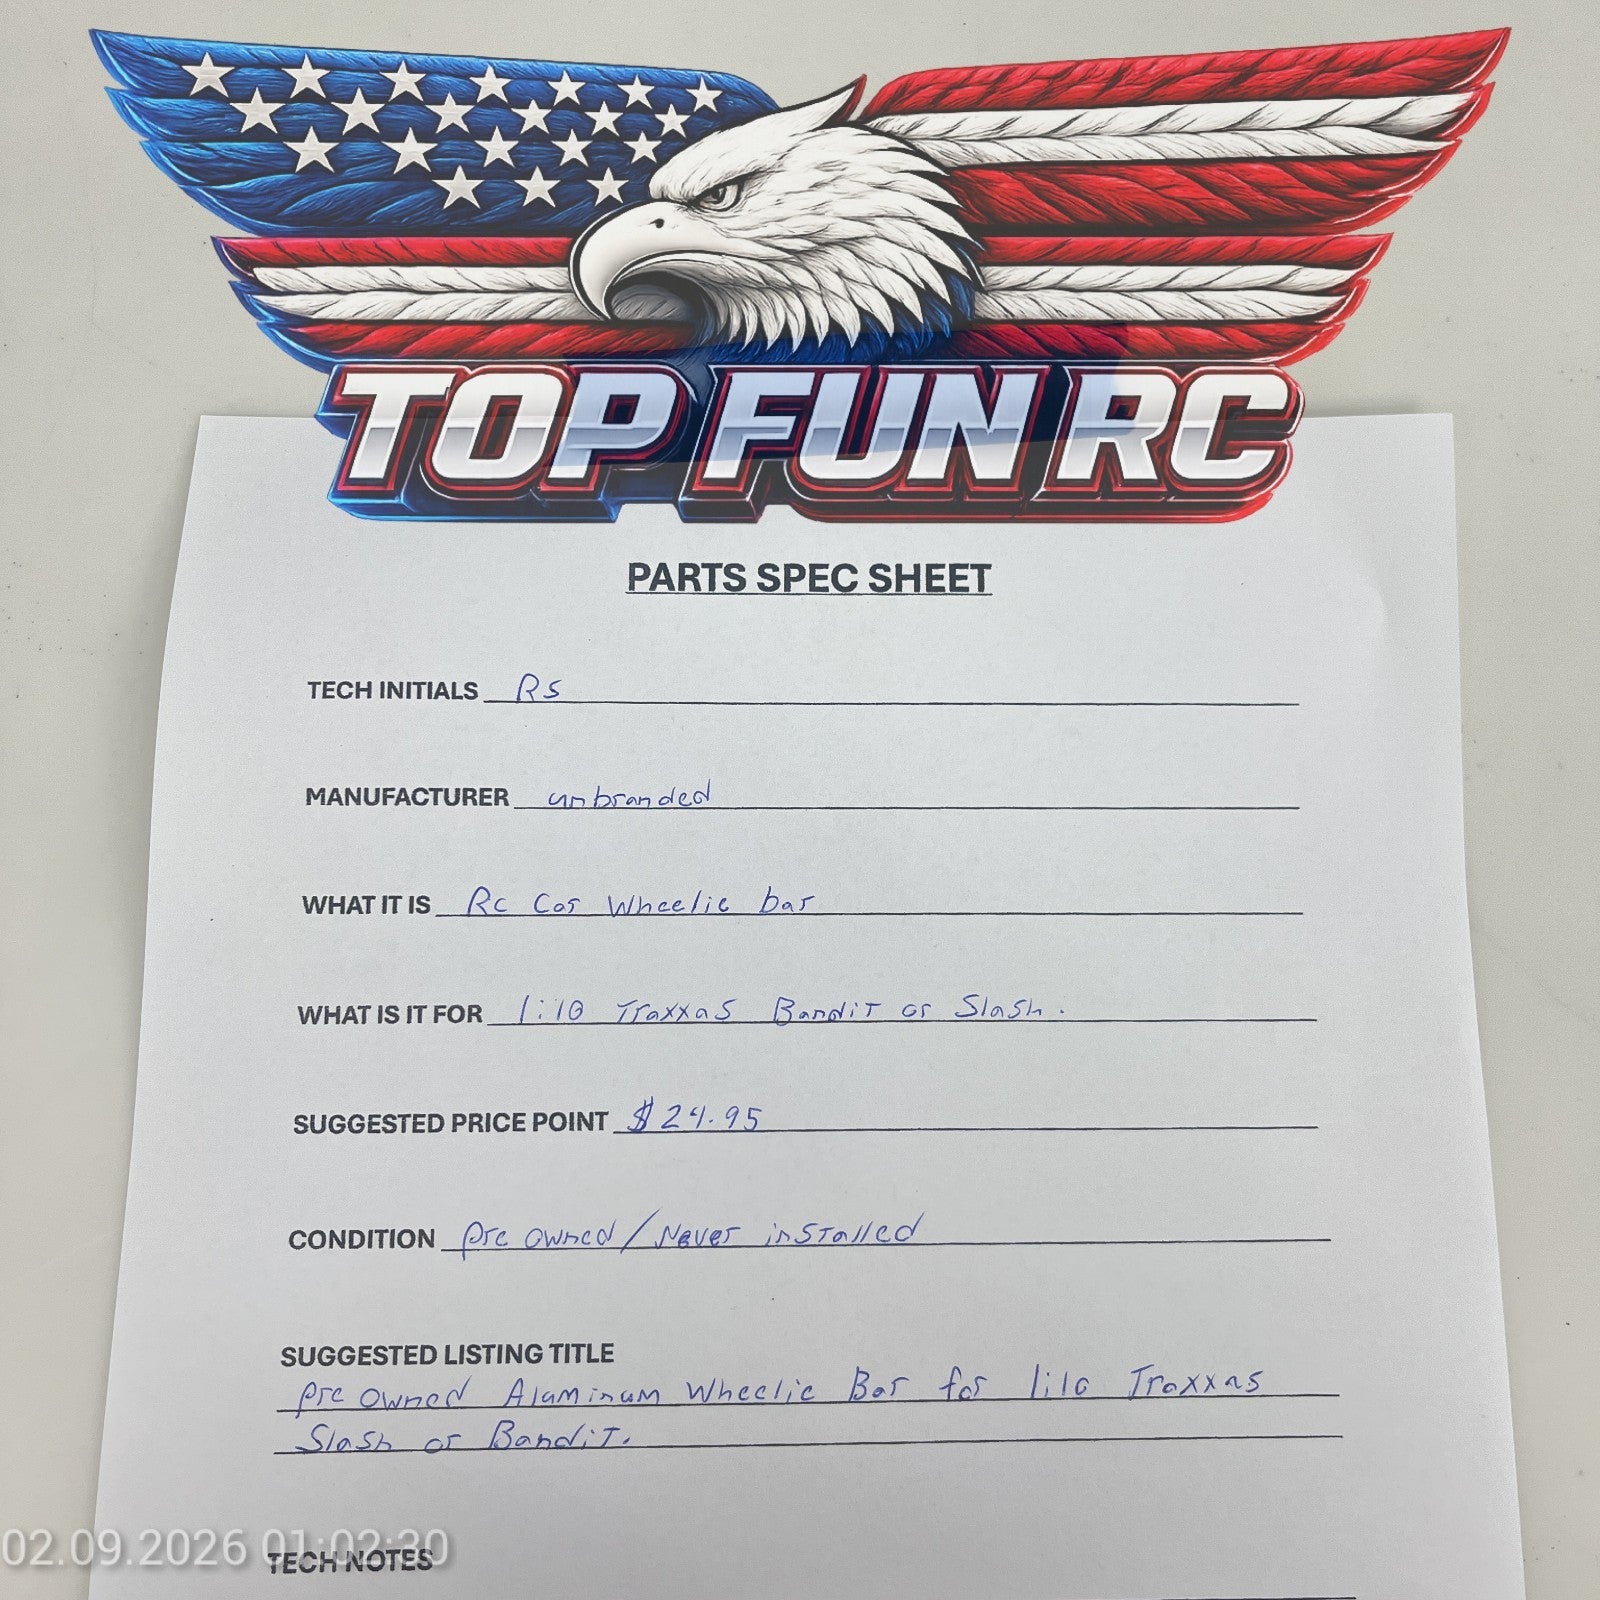 TOP FUN RC
PARTS SPEC SHEET
TECH INITIALS RS
MANUFACTURER unbranded
WHAT IT IS Rc Car Wheelie bar
WHAT IS IT FOR 1:10 Traxxas Bandit or Slash.
SUGGESTED PRICE POINT $24.95
CONDITION Pre owned/Never installed
SUGGESTED LISTING TITLE
Pre owned Aluminum Wheelie Bar for 1:10 Traxxas
Slash or Bandit.
02.09.2026 01:02:30
TECH NOTES